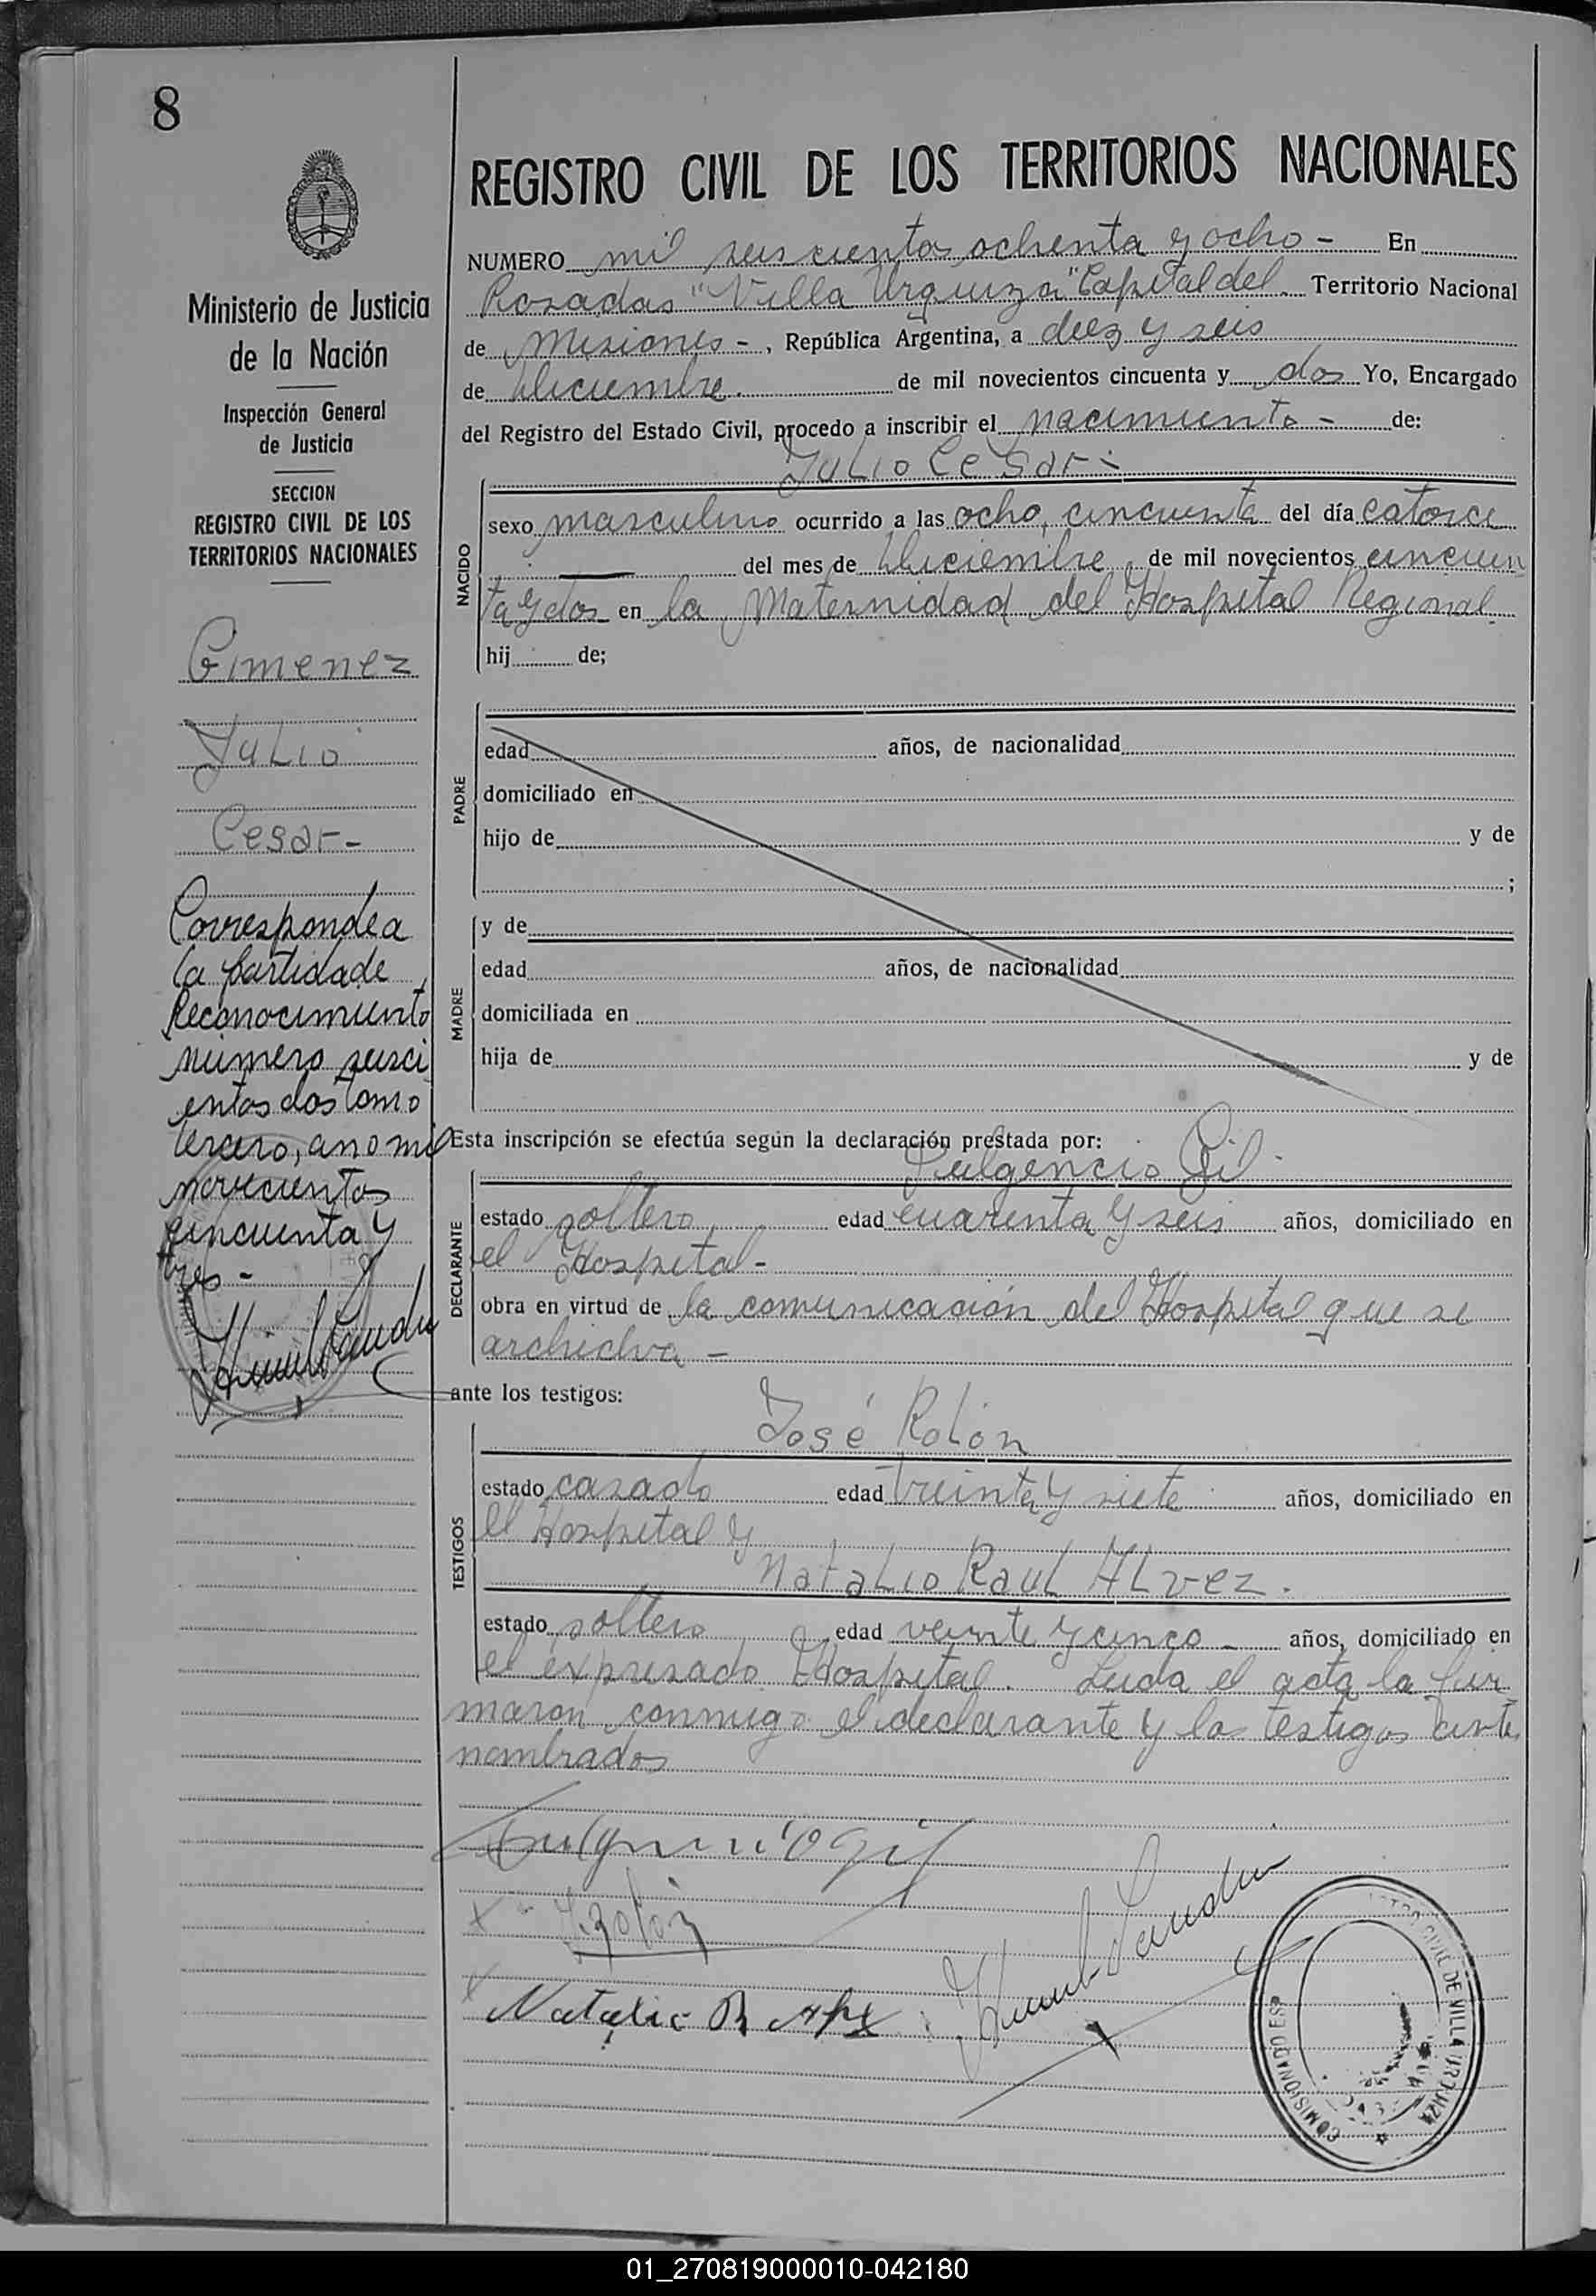 8
REGISTRO CIVIL DE LOS TERRITORIOS NACIONALES
Ministerio de Justicia
de la Nación
Inspección General
de Justicia
SECCION
REGISTRO CIVIL DE LOS
TERRITORIOS NACIONALES
Gimenez
Julio
Cesar-
Corresponde a
la partida de
Reconocimiento
número seisci
entos dos tomo
tercero, año mil
novecientos
cincuenta y
tres -
NUMERO mil seiscientos ochenta y ocho - En
Posadas "Villa Urquiza" Capital del Territorio Nacional
de Misiones - , República Argentina, a diez y seis
de diciembre. de mil novecientos cincuenta y dos Yo, Encargado
del Registro del Estado Civil, procedo a inscribir el nacimiento - de:
Julio Cesar -
NACIDO
sexo masculino ocurrido a las ocho, cincuenta del día catorce
del mes de diciembre, de mil novecientos cincuen
ta y dos en la Maternidad del Hospital Regional
hij de;
PADRE
edad años, de nacionalidad
domiciliado en
hijo de y de
;
MADRE
y de
edad años, de nacionalidad
domiciliada en
hija de y de
Esta inscripción se efectúa según la declaración prestada por:
Fulgencio Gil -
DECLARANTE
estado soltero edad cuarenta y seis años, domiciliado en
el Hospital -
obra en virtud de la comunicación del Hospital que se
archiva -
ante los testigos:
José Rolón
TESTIGOS
estado casado edad treinta y siete años, domiciliado en
el Hospital y
Natalio Raul Alvez.
estado soltero edad veinte y cinco - años, domiciliado en
el expresado Hospital. Leida el acta la fir
maron conmigo el declarante y los testigos ante
nombrados
Fulgencio Gil
J. Rolón
Natalio R Alvez
REGISTRO CIVIL DE VILLA URQUIZA
01_270819000010-042180